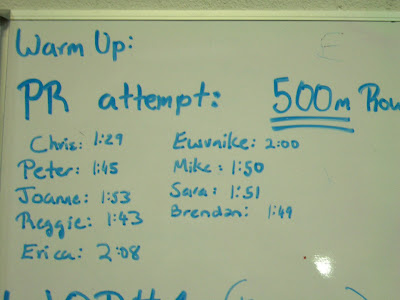 Warm Up:
PR attempt: 500m Row
Chris: 1:29
Peter: 1:45
Joanne: 1:53
Reggie: 1:43
Erica: 2:08
Ewunike: 2:00
Mike: 1:50
Sara: 1:51
Brendan: 1:49